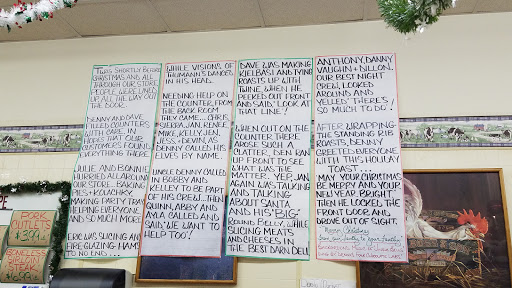 'TWAS SHORTLY BEFORE
CHRISTMAS AND ALL
THROUGH OUR STORE
PEOPLE WERE LINED
UP ALL THE WAY OUT
THE DOOR.
DENNY AND DAVE
FILLED COUNTERS
WITH CARE, IN
HOPES THEIR
CUSTOMERS FOUND
EVERYTHING THERE.
JULIE AND BONNIE
HURRIED ALL AROUND
OUR STORE... BAKING
PIES + KOUCHKY
MAKING PARTY TRAYS
HELPING EVERYONE
AND SO MUCH MORE!
ERIC WAS SLICING AND
FIRE GLAZING HAMS
TO NO END...
WHILE VISIONS OF
THUMANN'S DANCED
IN HIS HEAD.
NEEDING HELP ON
THE COUNTER, FROM
THE BACK ROOM
THEY CAME... CHRIS,
JAN, RENEE,
MIKE, KELLY, JEN,
JESS, + DEVIN, AS
DENNY CALLED HIS
ELVES BY NAME.
UNCLE DENNY CALLED
IN BOBBY AND
KELLEY TO BE PART
OF HIS CREW... THEN
QUINN, ABBY AND
AYLA CALLED AND
SAID, "WE WANT TO
HELP TOO!"
DAVE WAS MAKING
KIELBASI AND TYING
ROASTS UP WITH
TWINE, WHEN HE
PEEKED OUT FRONT
AND SAID "LOOK AT
THAT LINE"!
WHEN OUT ON THE
COUNTER THERE
AROSE SUCH A
CLATTER, DEN RAN
UP FRONT TO SEE
WHAT WAS THE
MATTER... YEP, JAN
AGAIN WAS TALKING
AND TALKING
ABOUT SANTA
AND HIS "BIG"
ROUND BELLY, WHILE
SLICING MEATS
AND CHEESES IN
THE BEST DARN DELI
ANTHONY, DANNY
VAUGHN + DILLON...
OUR BEST NIGHT
CREW, LOOKED
AROUND AND
YELLED "THERE'S
SO MUCH TO DO".
AFTER WRAPPING
THE STANDING RIB
ROASTS, DENNY
GREETED EVERYONE
WITH THIS HOLIDAY
TOAST....
MAY YOUR CHRISTMAS
BE MERRY AND YOUR
NEW YEAR BRIGHT,
THEN HE LOCKED THE
FRONT DOOR AND
DROVE OUT OF SIGHT.
Merry Christmas
PORK
CUTLETS
$3.99
BONELESS
SIRLOIN
STEAK
$6.99